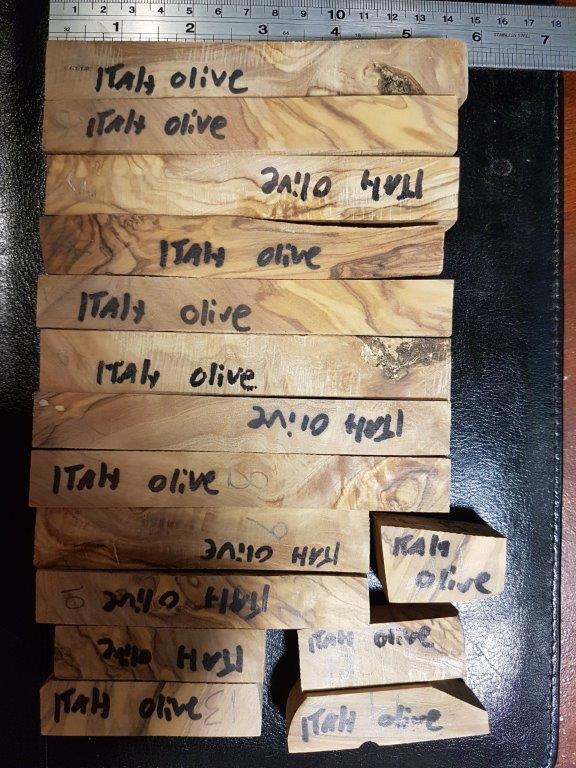 1 2 3 4 5 6 7 8 9 10 11 12 13 14 15 16 17 18
32 1 2 3 64 4 5 6 STAINLESS STEEL 7
ITAly olive
ITAly olive
ITAly olive
ITAly olive
ITAly olive
ITAly olive
ITAly olive
ITAly olive 8
9
ITAly olive
ITAly
olive
10 ITAly olive
ITAly olive
ITAly olive
ITAly olive 13
ITAly olive